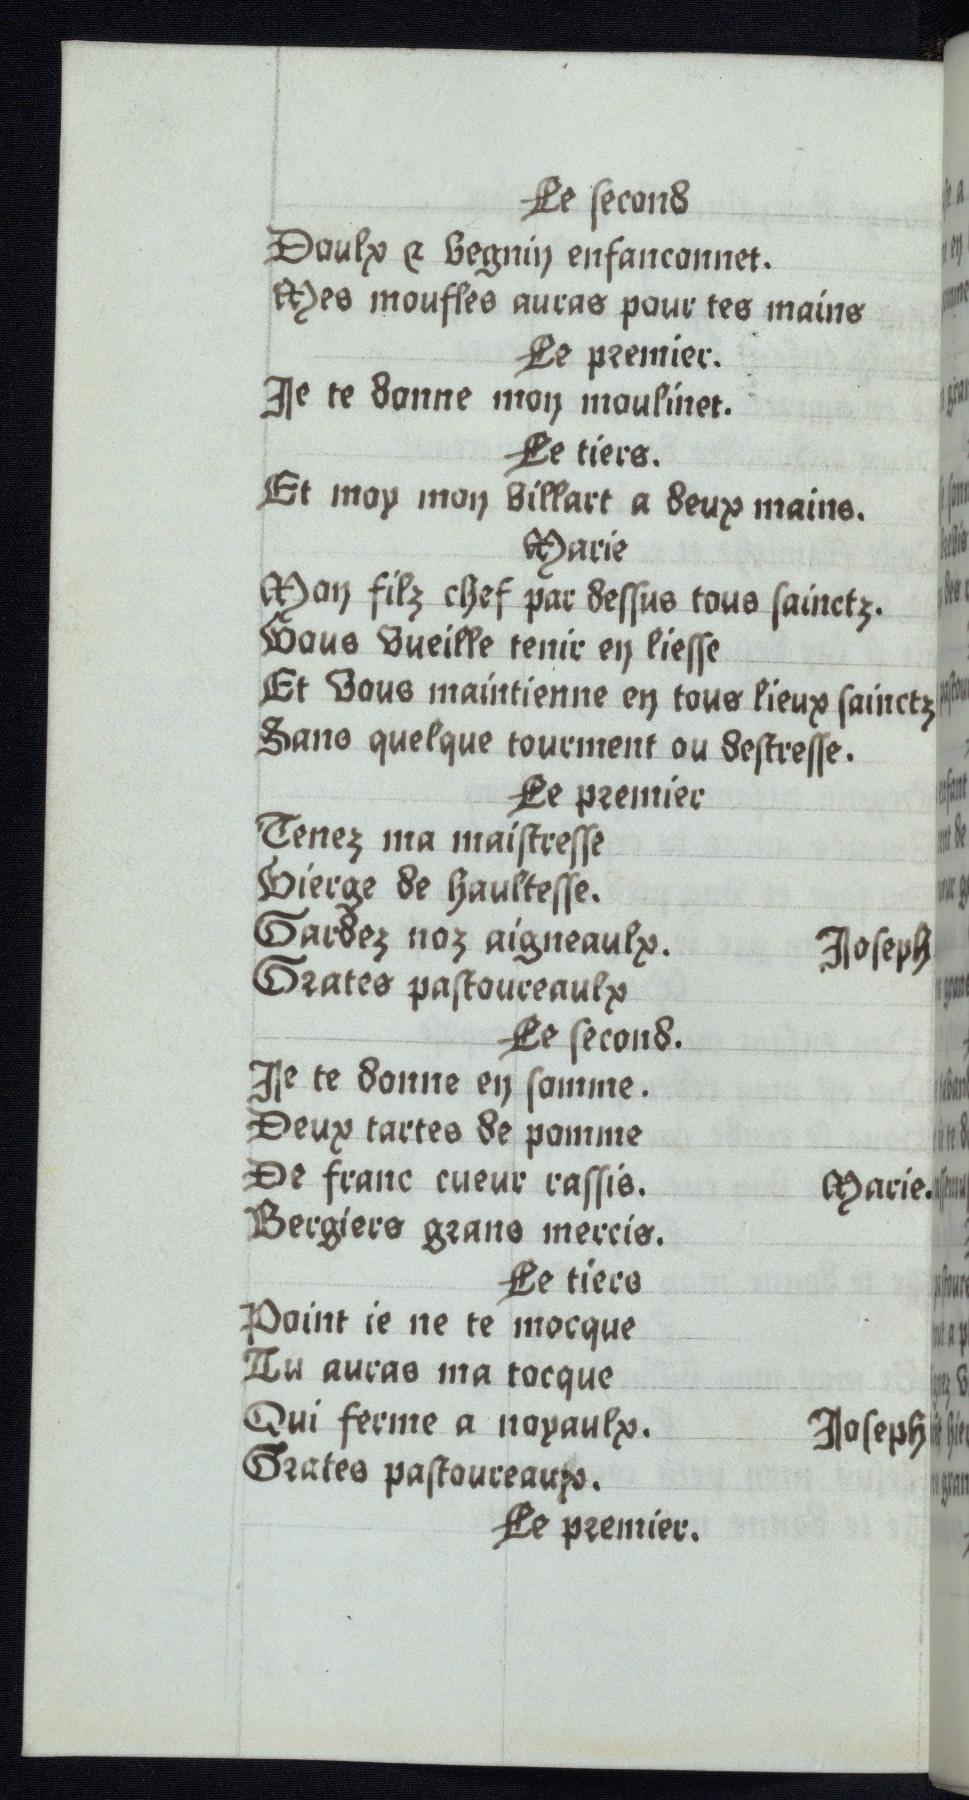 Le second
Doulx & begnin enfanconnet.
Mes moufles auras pour tes mains
Le premier.
Je te donne mon moulinet.
Le tiers.
Et moy mon billart a deux mains.
Marie
Mon filz chef par dessus tous sainctz.
Vous vueille tenir en liesse
Et vous maintienne en tous lieux sainctz
Sans quelque tourment ou destresse.
Le premier
Tenez ma maistresse
Vierge de haultesse.
Gardez noz aigneaulx. Joseph
Grates pastoureaulx
Le second.
Je te donne en somme.
Deux tartes de pomme
De franc cueur rassis. Marie.
Bergiers grans mercis.
Le tiers
Point ie ne te mocque
Tu auras ma tocque
Qui ferme a noyaulx. Joseph
Grates pastoureaux.
Le premier.